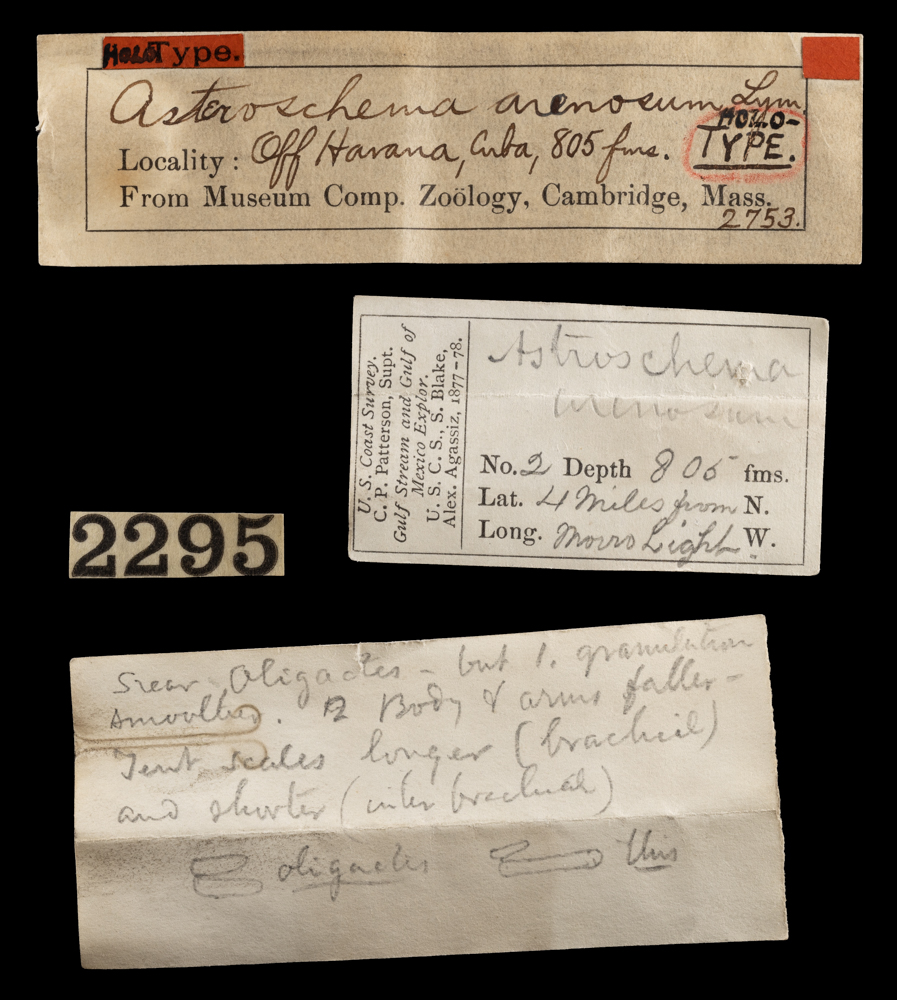 HOLOType.
Astroschema arenosum Lym.
HOLO-
TYPE.
Locality: Off Havana, Cuba, 805 fms.
From Museum Comp. Zoölogy, Cambridge, Mass.
2753.
U. S. Coast Survey.
C. P. Patterson, Supt.
Gulf Stream and Gulf of
Mexico Explor.
U. S. C. S., S. Blake,
Alex. Agassiz, 1877-78.
Astroschema
arenosum
No. 2 Depth 805 fms.
Lat. 4 Miles from N.
Long. Morro Light W.
2295
Oligactes - but 1. granulation
smoother. 2 Body & arms
Tent. scales longer (brachial)
and shorter (inter brachial)
oligactes this